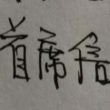 首席信